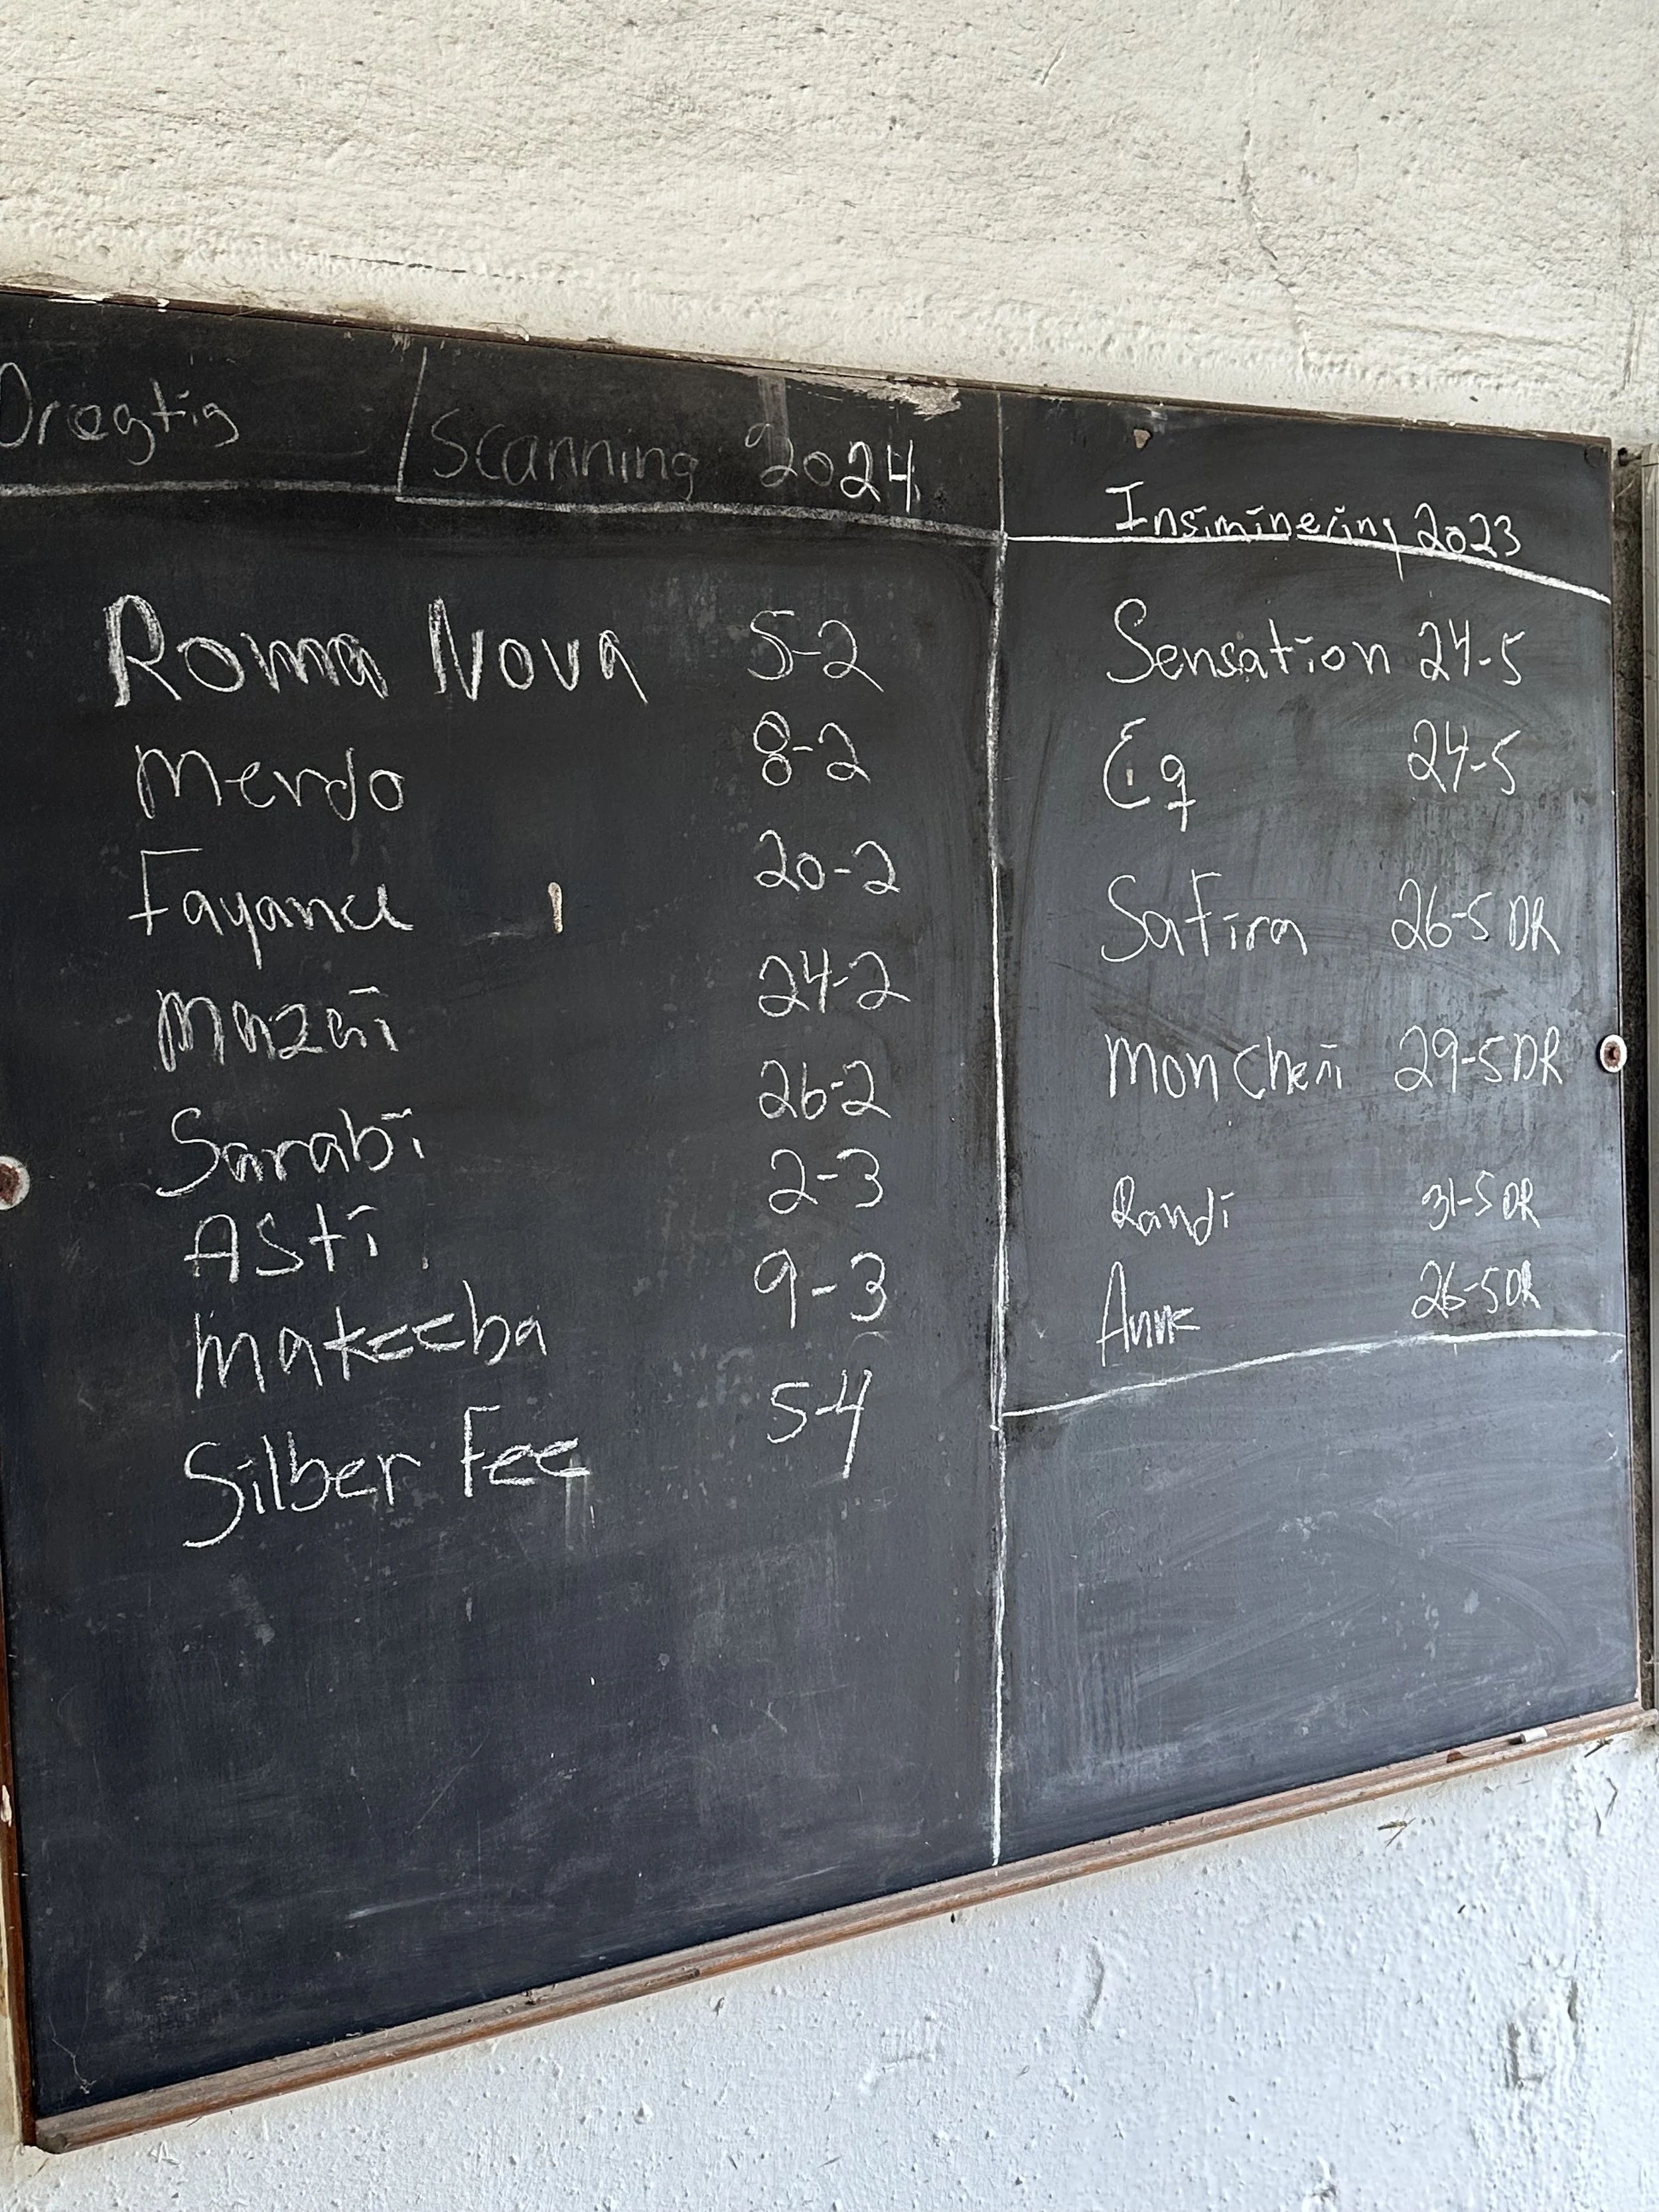 Drægtig Scanning 2024
Roma Nova 5-2
Merdo 8-2
Fayance 20-2
Mazai 24-2
Sarabi 26-2
Asti 2-3
Makeeba 9-3
Silber Fee 5-4
Insiminering 2023
Sensation 24-5
Eq 24-5
Safira 26-5 DR
Mon Cheri 29-5 DR
Randi 31-5 DR
Anne 26-5 DR